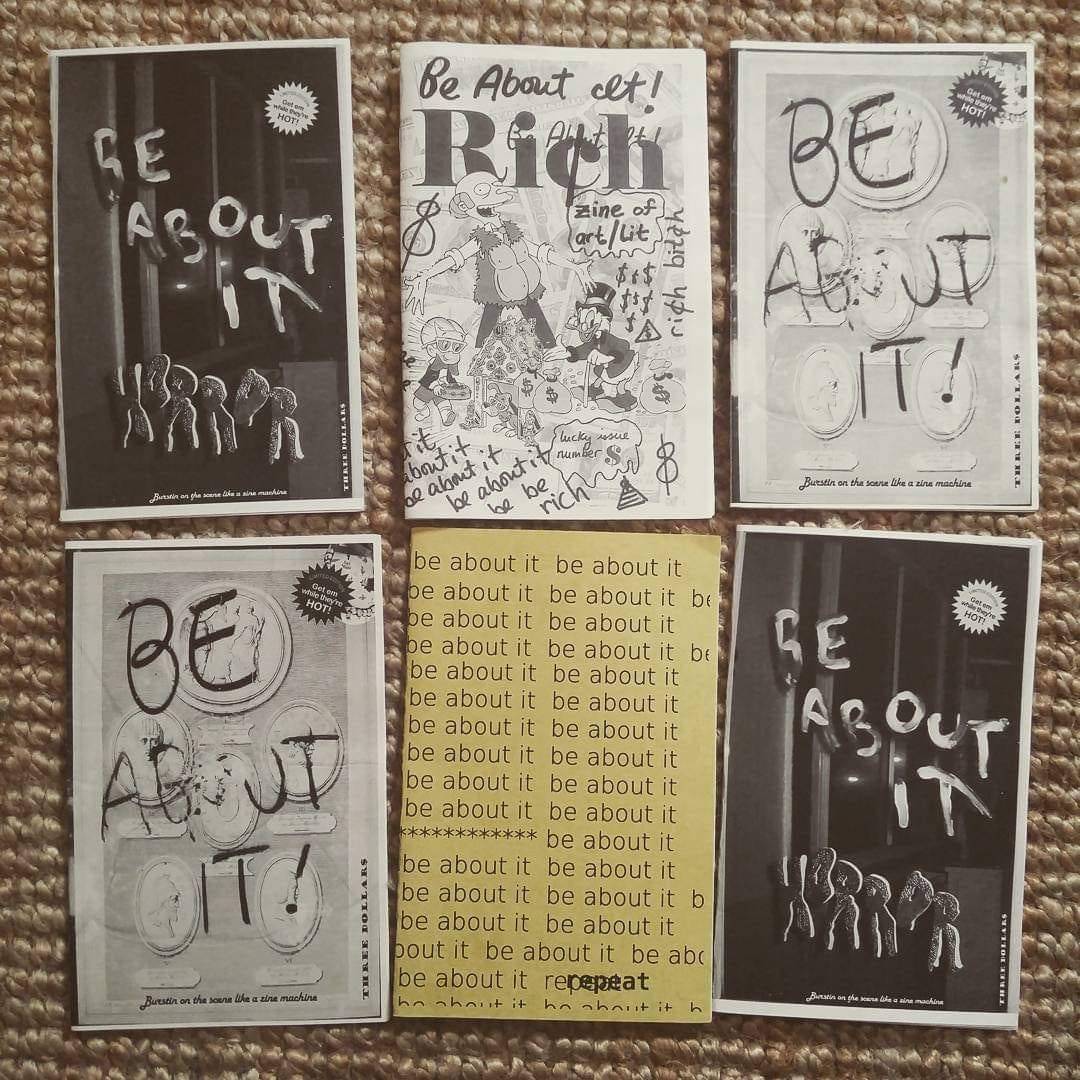 BE
ABOUT
IT
HORROR
LIMITED EDITION
Get em
while they're
HOT!
THREE DOLLARS
Burstin on the scene like a zine machine
Be About It!
Rich
Be About It!
zine of
art/lit
$
$ $ $
$ $ $
$
rich bitch
$
$
$
lucky issue
number 8
it
about it
be about it
be about it
be be
rich
BE
ABOUT
IT!
Get em
while they're
HOT!
THREE DOLLARS
Burstin on the scene like a zine machine
BE
ABOUT
IT!
LIMITED EDITION
Get em
while they're
HOT!
THREE DOLLARS
Burstin on the scene like a zine machine
be about it be about it
be about it be about it be
be about it be about it
be about it be about it be
be about it be about it
be about it be about it
be about it be about it
be about it be about it
be about it be about it
be about it be about it
************ be about it
be about it be about it
be about it be about it b
be about it be about it
bout it be about it be abo
be about it repeat
repeat
be about it be about it b
BE
ABOUT
IT
HORROR
LIMITED EDITION
Get em
while they're
HOT!
THREE DOLLARS
Burstin on the scene like a zine machine